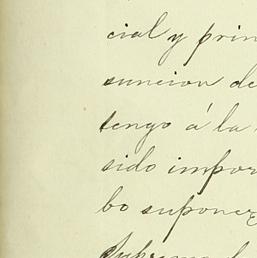 cial y prin
suncion de
tengo á la
sido impor
bo suponer